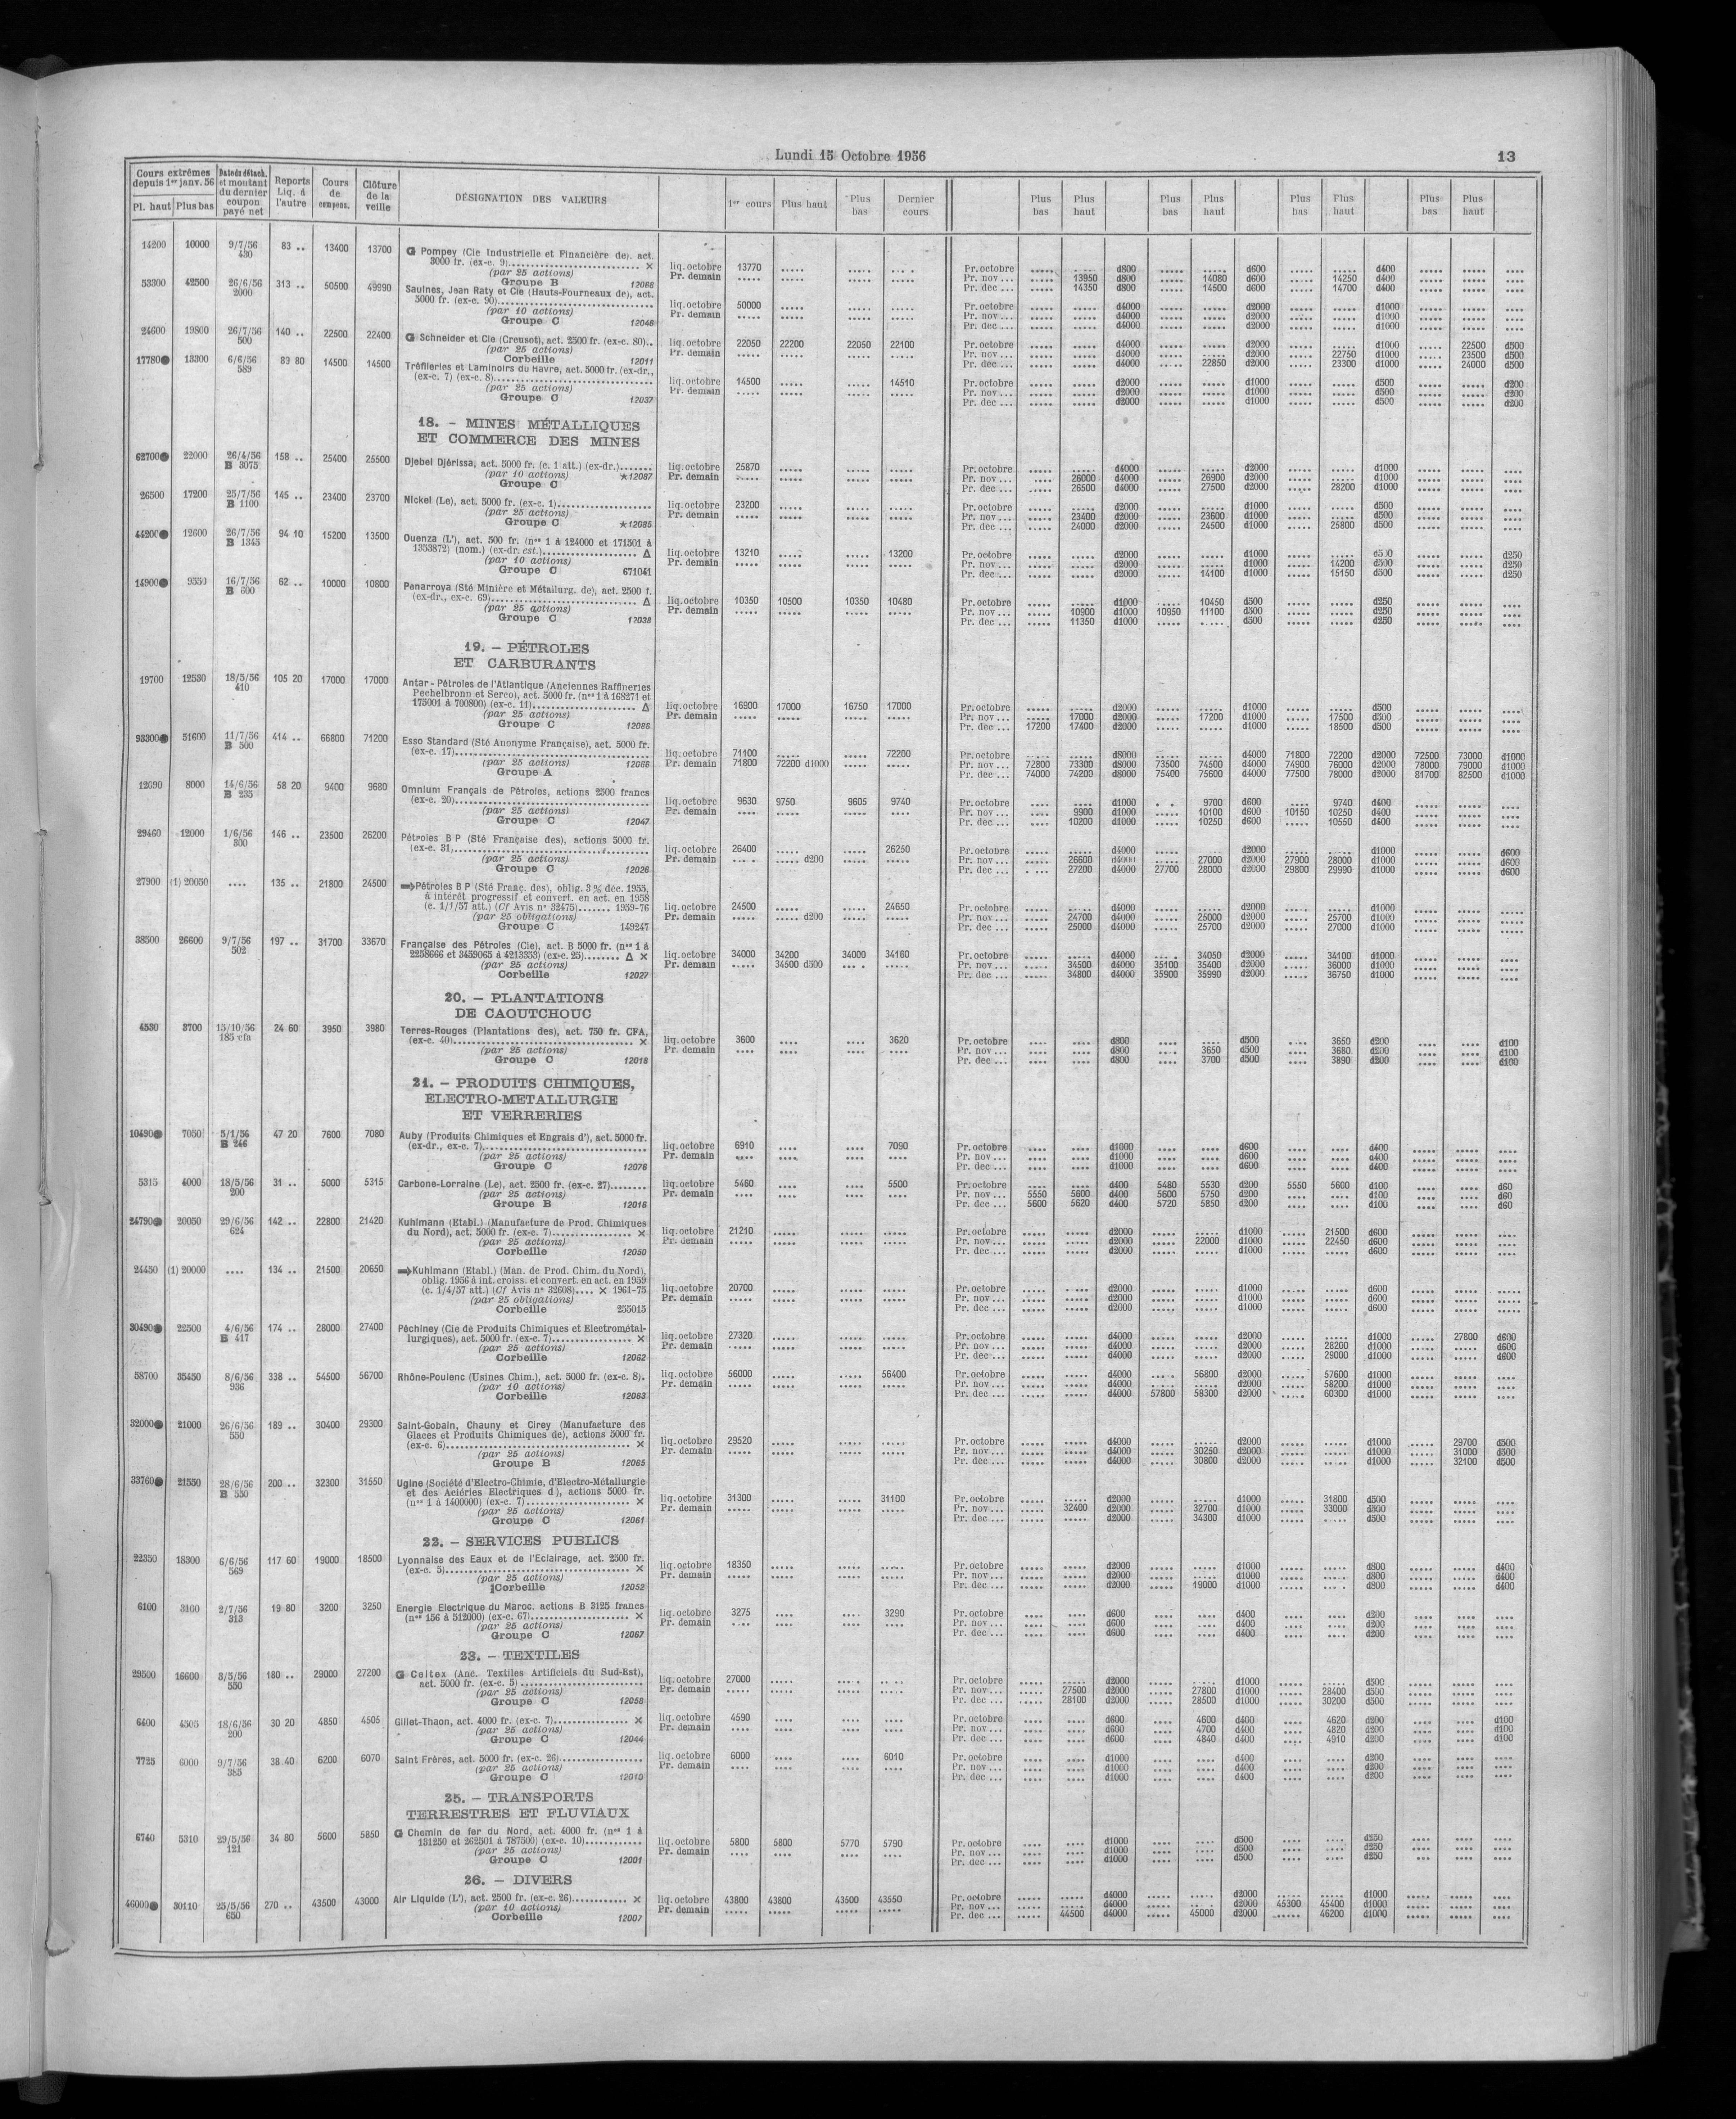 Lundi 15 Octobre 1956
13
Cours extrêmes depuis 1er janv. 56 | Date du détach. et montant du dernier coupon payé net | Reports Liq. à l'autre | Cours de compens. | Clôture de la veille | DÉSIGNATION DES VALEURS | 1er cours | Plus haut | Plus bas | Dernier cours | Plus bas | Plus haut | Plus bas | Plus haut | Plus bas | Plus haut | Plus bas | Plus haut
Pl. haut | Plus bas
14200 10000 9/7/56 430 83 .. 13400 13700 G Pompey (Cie Industrielle et Financière de), act.
3000 fr. (ex-c. 9) ×
(par 25 actions) liq. octobre 13770 Pr. octobre d800 d600 d400
Groupe B 12066 Pr. demain Pr. nov ... 13950 d800 14080 d600 14250 d400
Pr. dec ... 14350 d800 14500 d600 14700 d400
53300 42500 26/6/56 2000 313 .. 50500 49990 Saulnes, Jean Raty et Cie (Hauts-Fourneaux de), act.
5000 fr. (ex-c. 90) liq. octobre 50000 Pr. octobre d4000 d2000 d1000
(par 10 actions) Pr. demain Pr. nov ... d4000 d2000 d1000
Groupe C 12046 Pr. dec ... d4000 d2000 d1000
24600 19800 26/7/56 500 140 .. 22500 22400 G Schneider et Cie (Creusot), act. 2500 fr. (ex-c. 80)..
(par 25 actions) liq. octobre 22050 22200 22050 22100 Pr. octobre d4000 d2000 d1000 22500 d500
Corbeille 12011 Pr. demain Pr. nov ... d4000 d2000 22750 d1000 23500 d500
Pr. dec ... d4000 22850 d2000 23300 d1000 24000 d500
17780● 13300 6/6/56 589 83 80 14500 14500 Tréfileries et Laminoirs du Havre, act. 5000 fr. (ex-dr.,
(ex-c. 7) (ex-c. 8) liq. octobre 14500 14510 Pr. octobre d2000 d1000 d500 d200
(par 25 actions) Pr. demain Pr. nov ... d2000 d1000 d500 d200
Groupe C 12037 Pr. dec ... d2000 d1000 d500 d200
18. - MINES MÉTALLIQUES
ET COMMERCE DES MINES
62700● 22000 26/4/56 B 3075 158 .. 25400 25500 Djebel Djérissa, act. 5000 fr. (c. 1 att.) (ex-dr.)
(par 10 actions) ★12087 liq. octobre 25870 Pr. octobre d4000 d2000 d1000
Groupe C Pr. demain Pr. nov ... 26000 d4000 26900 d2000 d1000
Pr. dec ... 26500 d4000 27500 d2000 28200 d1000
26500 17200 25/7/56 B 1100 145 .. 23400 23700 Nickel (Le), act. 5000 fr. (ex-c. 1)
(par 25 actions) liq. octobre 23200 Pr. octobre d2000 d1000 d500
Groupe C ★12085 Pr. demain Pr. nov ... 23400 d2000 23600 d1000 d500
Pr. dec ... 24000 d2000 24500 d1000 25800 d500
44200● 12600 26/7/56 B 1345 94 10 15200 13500 Ouenza (L'), act. 500 fr. (nos 1 à 124000 et 171501 à
1353872) (nom.) (ex-dr. est.) Δ liq. octobre 13210 13200 Pr. octobre d2000 d1000 d500 d250
(par 10 actions) Pr. demain Pr. nov ... d2000 d1000 14200 d500 d250
Groupe C 671041 Pr. dec ... d2000 14100 d1000 15150 d500 d250
14900● 9550 16/7/56 B 600 62 .. 10000 10600 Penarroya (Sté Minière et Métallurg. de), act. 2500 f.
(ex-dr., ex-c. 69) Δ liq. octobre 10350 10500 10350 10480 Pr. octobre d1000 10450 d500 d250
(par 25 actions) Pr. demain Pr. nov ... 10900 d1000 10950 11100 d500 d250
Groupe C 12038 Pr. dec ... 11350 d1000 d500 d250
19. - PÉTROLES
ET CARBURANTS
19700 12530 18/5/56 410 105 20 17000 17000 Antar - Pétroles de l'Atlantique (Anciennes Raffineries
Pechelbronn et Serco), act. 5000 fr. (nos 1 à 168271 et
175001 à 700800) (ex-c. 11) Δ liq. octobre 16900 17000 16750 17000 Pr. octobre d2000 d1000 d500
(par 25 actions) Pr. demain Pr. nov ... 17000 d2000 17200 d1000 17500 d500
Groupe C 12086 Pr. dec ... 17200 17400 d2000 d1000 18500 d500
93300● 51600 11/7/56 B 500 414 .. 66800 71200 Esso Standard (Sté Anonyme Française), act. 5000 fr.
(ex-c. 17) liq. octobre 71100 72200 Pr. octobre d8000 d4000 71800 72200 d2000 72500 73000 d1000
(par 25 actions) 12066 Pr. demain 71800 72200 d1000 Pr. nov ... 72800 73300 d8000 73500 74500 d4000 74900 76000 d2000 78000 79000 d1000
Groupe A Pr. dec ... 74000 74200 d8000 75400 75600 d4000 77500 78000 d2000 81700 82500 d1000
12690 8000 14/6/56 B 235 58 20 9400 9680 Omnium Français de Pétroles, actions 2500 francs
(ex-c. 20) liq. octobre 9630 9750 9605 9740 Pr. octobre d1000 9700 d600 9740 d400
(par 25 actions) Pr. demain Pr. nov ... 9900 d1000 10100 d600 10150 10250 d400
Groupe C 12047 Pr. dec ... 10200 d1000 10250 d600 10550 d400
29460 12000 1/6/56 300 146 .. 23500 26200 Pétroles B P (Sté Française des), actions 5000 fr.
(ex-c. 31) liq. octobre 26400 26250 Pr. octobre d4000 d2000 d1000 d600
(par 25 actions) Pr. demain d200 Pr. nov ... 26600 d4000 27000 d2000 27900 28000 d1000 d600
Groupe C 12026 Pr. dec ... 27200 d4000 27700 28000 d2000 29800 29990 d1000 d600
27900 (1) 20050 .... 135 .. 21800 24500 ➔Pétroles B P (Sté Franç. des), oblig. 3 % déc. 1955,
à intérêt progressif et convert. en act. en 1958
(c. 1/1/57 att.) (Cf Avis n° 32475) 1959-76 liq. octobre 24500 24650 Pr. octobre d4000 d2000 d1000
(par 25 obligations) Pr. demain d200 Pr. nov ... 24700 d4000 25000 d2000 25700 d1000
Groupe C 149247 Pr. dec ... 25000 d4000 25700 d2000 27000 d1000
38500 26600 9/7/56 502 197 .. 31700 33670 Française des Pétroles (Cie), act. B 5000 fr. (nos 1 à
2258666 et 3459065 à 4213353) (ex-c. 25) Δ × liq. octobre 34000 34200 34000 34160 Pr. octobre d4000 34050 d2000 34100 d1000
(par 25 actions) Pr. demain 34500 d500 Pr. nov ... 34500 d4000 35100 35400 d2000 36000 d1000
Corbeille 12027 Pr. dec ... 34800 d4000 35900 35990 d2000 36750 d1000
20. - PLANTATIONS
DE CAOUTCHOUC
4530 3700 15/10/56 185 cfa 24 60 3950 3980 Terres-Rouges (Plantations des), act. 750 fr. CFA,
(ex-c. 40) × liq. octobre 3600 3620 Pr. octobre d800 d500 3650 d200 d100
(par 25 actions) Pr. demain Pr. nov ... d800 3650 d500 3680 d200 d100
Groupe C 12018 Pr. dec ... d800 3700 d500 3890 d200 d100
21. - PRODUITS CHIMIQUES,
ELECTRO-METALLURGIE
ET VERRERIES
10490● 7050 5/1/56 B 246 47 20 7600 7080 Auby (Produits Chimiques et Engrais d'), act. 5000 fr.
(ex-dr., ex-c. 7) liq. octobre 6910 7090 Pr. octobre d1000 d600 d400
(par 25 actions) Pr. demain Pr. nov ... d1000 d600 d400
Groupe C 12076 Pr. dec ... d1000 d600 d400
5315 4000 18/5/56 200 31 .. 5000 5315 Carbone-Lorraine (Le), act. 2500 fr. (ex-c. 27) liq. octobre 5460 5500 Pr. octobre d400 5480 5530 d200 5550 5600 d100 d60
(par 25 actions) Pr. demain Pr. nov ... 5550 5600 d400 5600 5750 d200 d100 d60
Groupe B 12016 Pr. dec ... 5600 5620 d400 5720 5850 d200 d100 d60
24790● 20050 29/6/56 624 142 .. 22800 21420 Kuhlmann (Etabl.) (Manufacture de Prod. Chimiques
du Nord), act. 5000 fr. (ex-c. 7) × liq. octobre 21210 Pr. octobre d2000 d1000 21500 d600
(par 25 actions) Pr. demain Pr. nov ... d2000 22000 d1000 22450 d600
Corbeille 12050 Pr. dec ... d2000 d1000 d600
24450 (1) 20000 .... 134 .. 21500 20650 ➔Kuhlmann (Etabl.) (Man. de Prod. Chim. du Nord),
oblig. 1956 à int. croiss. et convert. en act. en 1959
(c. 1/4/57 att.) (Cf Avis n° 32608) × 1961-75 liq. octobre 20700 Pr. octobre d2000 d1000 d600
(par 25 obligations) Pr. demain Pr. nov ... d2000 d1000 d600
Corbeille 255015 Pr. dec ... d2000 d1000 d600
30490● 22500 4/6/56 B 417 174 .. 28000 27400 Péchiney (Cie de Produits Chimiques et Electrométal-
lurgiques), act. 5000 fr. (ex-c. 7) × liq. octobre 27320 Pr. octobre d4000 d2000 d1000 27800 d600
(par 25 actions) Pr. demain Pr. nov ... d4000 d2000 28200 d1000 d600
Corbeille 12062 Pr. dec ... d4000 d2000 29000 d1000 d600
58700 35450 8/6/56 936 338 .. 54500 56700 Rhône-Poulenc (Usines Chim.), act. 5000 fr. (ex-c. 8). liq. octobre 56000 56400 Pr. octobre d4000 56800 d2000 57600 d1000
(par 10 actions) Pr. demain Pr. nov ... d4000 d2000 58200 d1000
Corbeille 12063 Pr. dec ... d4000 57800 58300 d2000 60300 d1000
32000● 21000 26/6/56 550 189 .. 30400 29300 Saint-Gobain, Chauny et Cirey (Manufacture des
Glaces et Produits Chimiques de), actions 5000 fr.
(ex-c. 6) × liq. octobre 29520 Pr. octobre d4000 d2000 d1000 29700 d500
(par 25 actions) Pr. demain Pr. nov ... d4000 30250 d2000 d1000 31000 d500
Groupe B 12065 Pr. dec ... d4000 30800 d2000 d1000 32100 d500
33760● 21550 28/6/56 B 550 200 .. 32300 31550 Ugine (Société d'Electro-Chimie, d'Electro-Métallurgie
et des Aciéries Electriques d'), actions 5000 fr.
(nos 1 à 1400000) (ex-c. 7) × liq. octobre 31300 31100 Pr. octobre d2000 d1000 31800 d500
(par 25 actions) Pr. demain Pr. nov ... 32400 d2000 32700 d1000 33000 d500
Groupe C 12061 Pr. dec ... d2000 34300 d1000 d500
22. - SERVICES PUBLICS
22350 18300 6/6/56 569 117 60 19000 18500 Lyonnaise des Eaux et de l'Eclairage, act. 2500 fr.
(ex-c. 5) × liq. octobre 18350 Pr. octobre d2000 d1000 d800 d400
(par 25 actions) Pr. demain Pr. nov ... d2000 d1000 d800 d400
Corbeille 12052 Pr. dec ... d2000 19000 d1000 d800 d400
6100 3100 2/7/56 313 19 80 3200 3250 Energie Electrique du Maroc. actions B 3125 francs
(nos 156 à 512000) (ex-c. 67) × liq. octobre 3275 3290 Pr. octobre d600 d400 d200
(par 25 actions) Pr. demain Pr. nov ... d600 d400 d200
Groupe C 12067 Pr. dec ... d600 d400 d200
23. - TEXTILES
29500 16600 3/5/56 550 180 .. 29000 27200 G Celtex (Anc. Textiles Artificiels du Sud-Est),
act. 5000 fr. (ex-c. 5) liq. octobre 27000 Pr. octobre d2000 d1000 d500
(par 25 actions) Pr. demain Pr. nov ... 27500 d2000 27800 d1000 28400 d500
Groupe C 12058 Pr. dec ... 28100 d2000 28500 d1000 30200 d500
6400 4505 18/6/56 200 30 20 4850 4505 Gillet-Thaon, act. 4000 fr. (ex-c. 7) × liq. octobre 4590 Pr. octobre d600 4600 d400 4620 d200 d100
(par 25 actions) Pr. demain Pr. nov ... d600 4700 d400 4820 d200 d100
Groupe C 12044 Pr. dec ... d600 4840 d400 4910 d200 d100
7725 6000 9/7/56 385 38 40 6200 6070 Saint Frères, act. 5000 fr. (ex-c. 26) liq. octobre 6000 6010 Pr. octobre d1000 d400 d200
(par 25 actions) Pr. demain Pr. nov ... d1000 d400 d200
Groupe C 12010 Pr. dec ... d1000 d400 d200
25. - TRANSPORTS
TERRESTRES ET FLUVIAUX
6740 5310 29/5/56 121 34 80 5600 5850 G Chemin de fer du Nord, act. 4000 fr. (nos 1 à
131250 et 262501 à 787500) (ex-c. 10) liq. octobre 5800 5800 5770 5790 Pr. octobre d1000 d500 d250
(par 25 actions) Pr. demain Pr. nov ... d1000 d500 d250
Groupe C 12001 Pr. dec ... d1000 d500 d250
26. - DIVERS
46000● 30110 25/5/56 650 270 .. 43500 43000 Air Liquide (L'), act. 2500 fr. (ex-c. 26) × liq. octobre 43800 43800 43500 43550 Pr. octobre d4000 d2000 d1000
(par 10 actions) Pr. demain Pr. nov ... d4000 d2000 45300 45400 d1000
Corbeille 12007 Pr. dec ... 44500 d4000 45000 d2000 46200 d1000